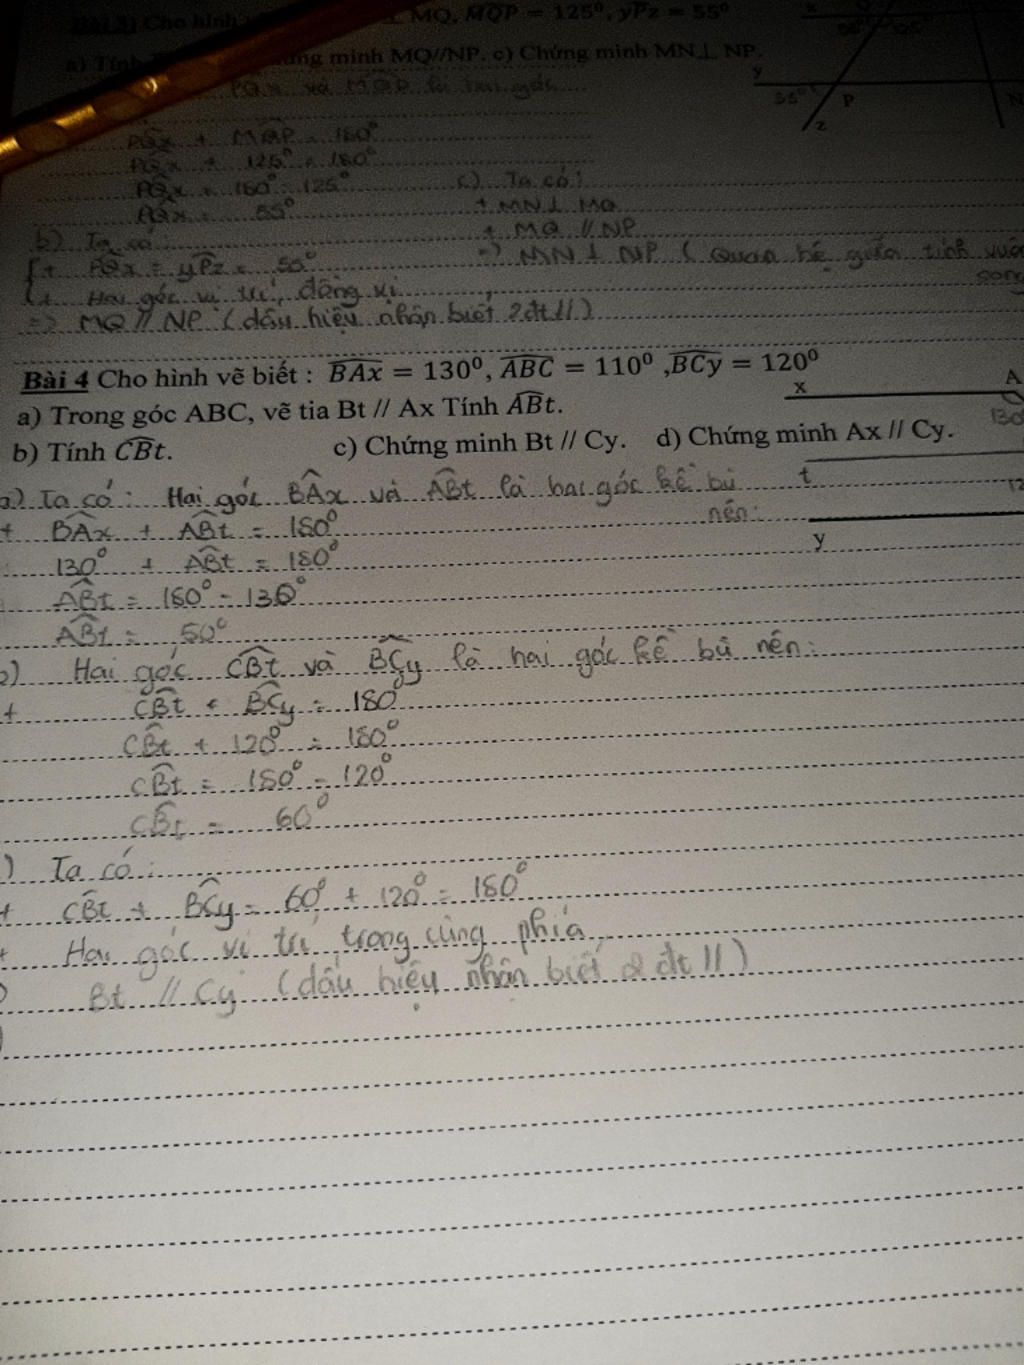 Bài 3) Cho hình MQ, MQP = 125⁰, yPz = 55⁰
a) Tính ứng minh MQ//NP. c) Chứng minh MN⊥ NP.
PQx và MQP là hai góc
PQx + MQP = 180⁰
PQx + 125⁰ = 180⁰
PQx = 180⁰ - 125⁰
PQx = 55⁰
c) Ta có:
+ MN⊥ MQ
+ MQ // NP
=> MN ⊥ NP ( Quan hệ giữa tính vuôn
song
b) Ta có:
{+ PQx = yPz = 55⁰
{+ Hai góc vị trí đồng vị
=> MQ // NP (dấu hiệu nhận biết 2 đt //)
x
y
55⁰
P
z
N
Bài 4 Cho hình vẽ biết : BAx = 130⁰, ABC = 110⁰ ,BCy = 120⁰
a) Trong góc ABC, vẽ tia Bt // Ax Tính ABt.
b) Tính CBt. c) Chứng minh Bt // Cy. d) Chứng minh Ax // Cy.
x A
130⁰
t
12
y
a) Ta có: Hai góc BAx và ABt là hai góc kề bù
nên:
+ BAx + ABt = 180⁰
130⁰ + ABt = 180⁰
ABt = 180⁰ - 130⁰
ABt = 50⁰
b) Hai góc CBt và BCy là hai góc kề bù nên:
+ CBt + BCy = 180⁰
CBt + 120⁰ = 180⁰
CBt = 180⁰ - 120⁰
CBt = 60⁰
) Ta có:
+ CBt + BCy = 60⁰ + 120⁰ = 180⁰
+ Hai góc vị trí trong cùng phía
Bt // Cy (dấu hiệu nhận biết 2 đt //)